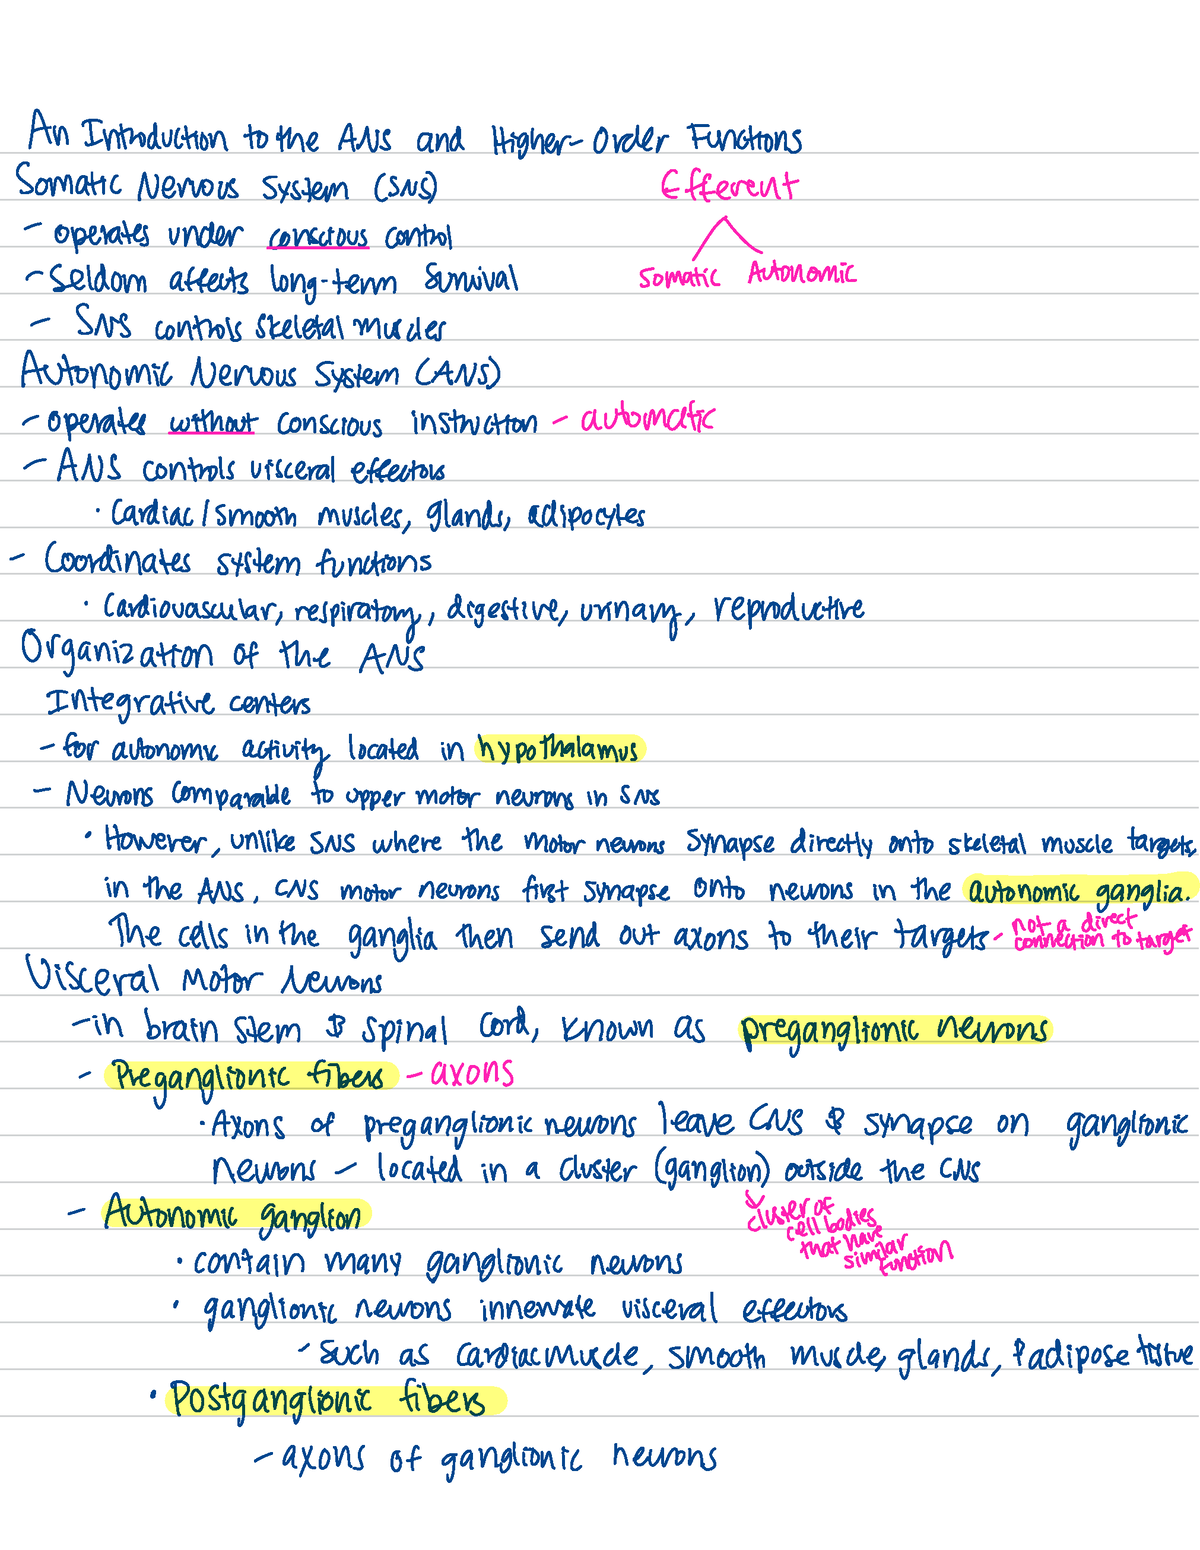 An Introduction to the ANS and Higher-Order Functions
Somatic Nervous System (SNS)
Efferent
- operates under conscious control
Somatic Autonomic
- Seldom affects long-term survival
- SNS controls skeletal muscles
Autonomic Nervous System (ANS)
- operates without conscious instruction - automatic
- ANS controls visceral effectors
• Cardiac/smooth muscles, glands, adipocytes
- Coordinates system functions
• Cardiovascular, respiratory, digestive, urinary, reproductive
Organization of the ANS
Integrative centers
- for autonomic activity located in hypothalamus
- Neurons comparable to upper motor neurons in SNS
• However, unlike SNS where the motor neurons synapse directly onto skeletal muscle targets,
in the ANS, CNS motor neurons first synapse onto neurons in the autonomic ganglia.
The cells in the ganglia then send out axons to their targets - not a direct
connection to target
Visceral Motor Neurons
- in brain stem & spinal cord, known as preganglionic neurons
- Preganglionic fibers - axons
• Axons of preganglionic neurons leave CNS & synapse on ganglionic
neurons - located in a cluster (ganglion) outside the CNS
- Autonomic ganglion
cluster of
cell bodies
that have
similar
function
• contain many ganglionic neurons
• ganglionic neurons innervate visceral effectors
- such as cardiac muscle, smooth muscle, glands, & adipose tissue
• Postganglionic fibers
- axons of ganglionic neurons